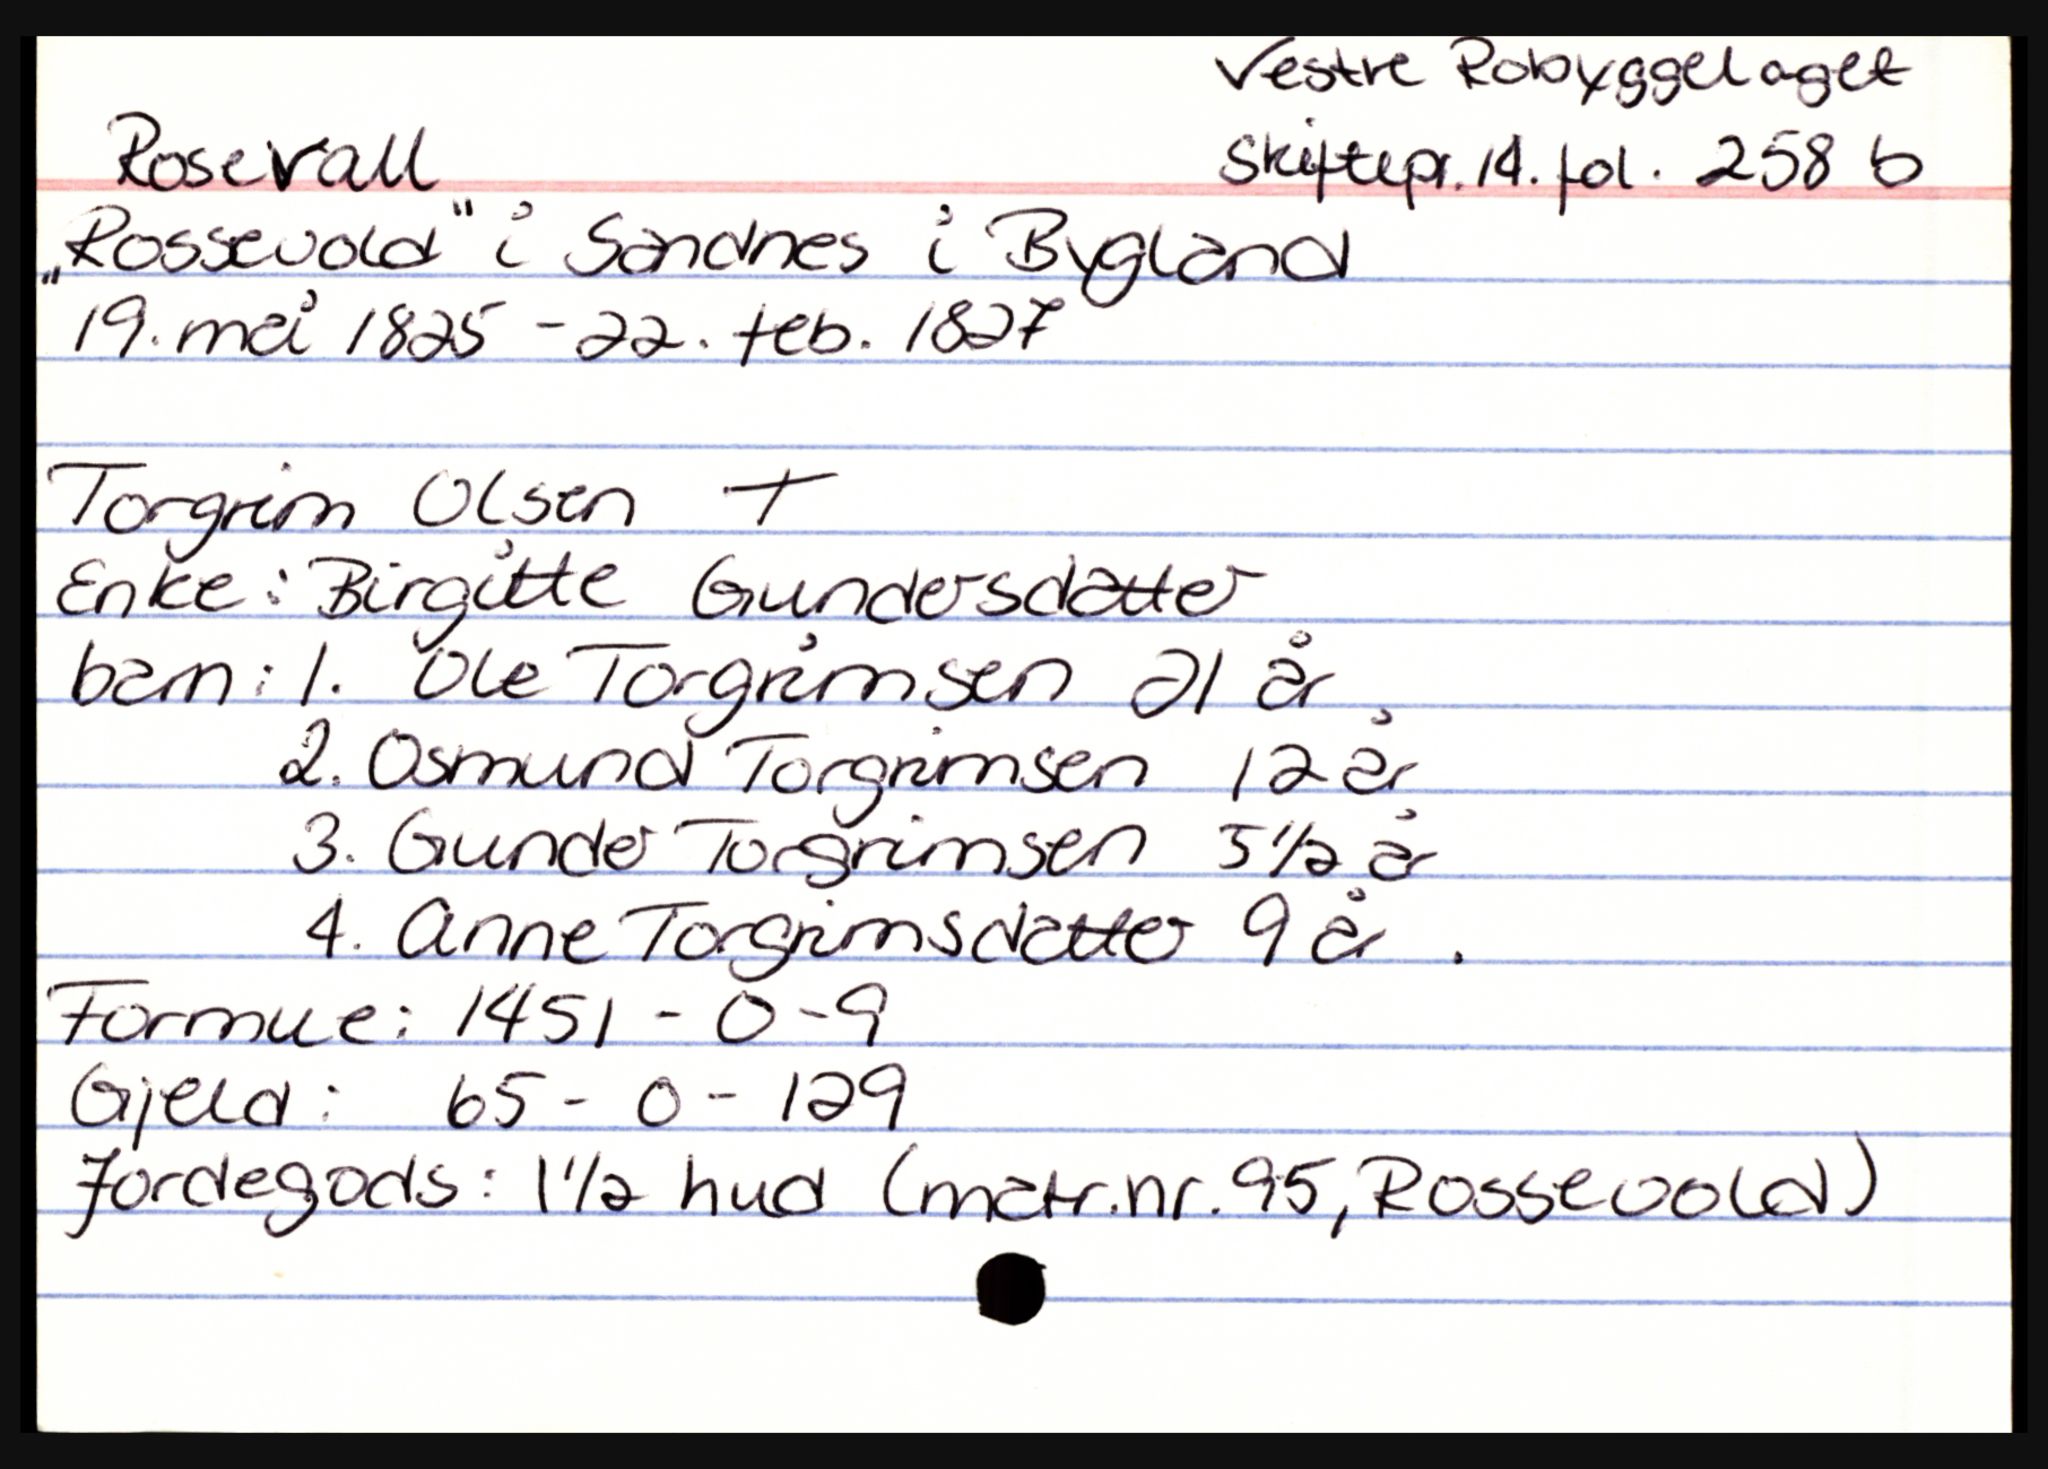 Vestre Robyggelaget
Rosevall
Skiftepr. 14. fol. 258 b
„Rossevold“ i Sandnes i Bygland
19. mai 1825 - 22. feb. 1827
Torgrim Olsen +
Enke: Birgitte Gundersdatter
barn: 1. Ole Torgrimsen 21 år
2. Osmund Torgrimsen 12 år
3. Gunder Torgrimsen 5 1/2 år
4. Anne Torgrimsdatter 9 år .
Formue: 1451 - 0 - 9
Gjeld: 65 - 0 - 129
Jordegods: 1 1/2 hud (matr.nr. 95, Rossevold)